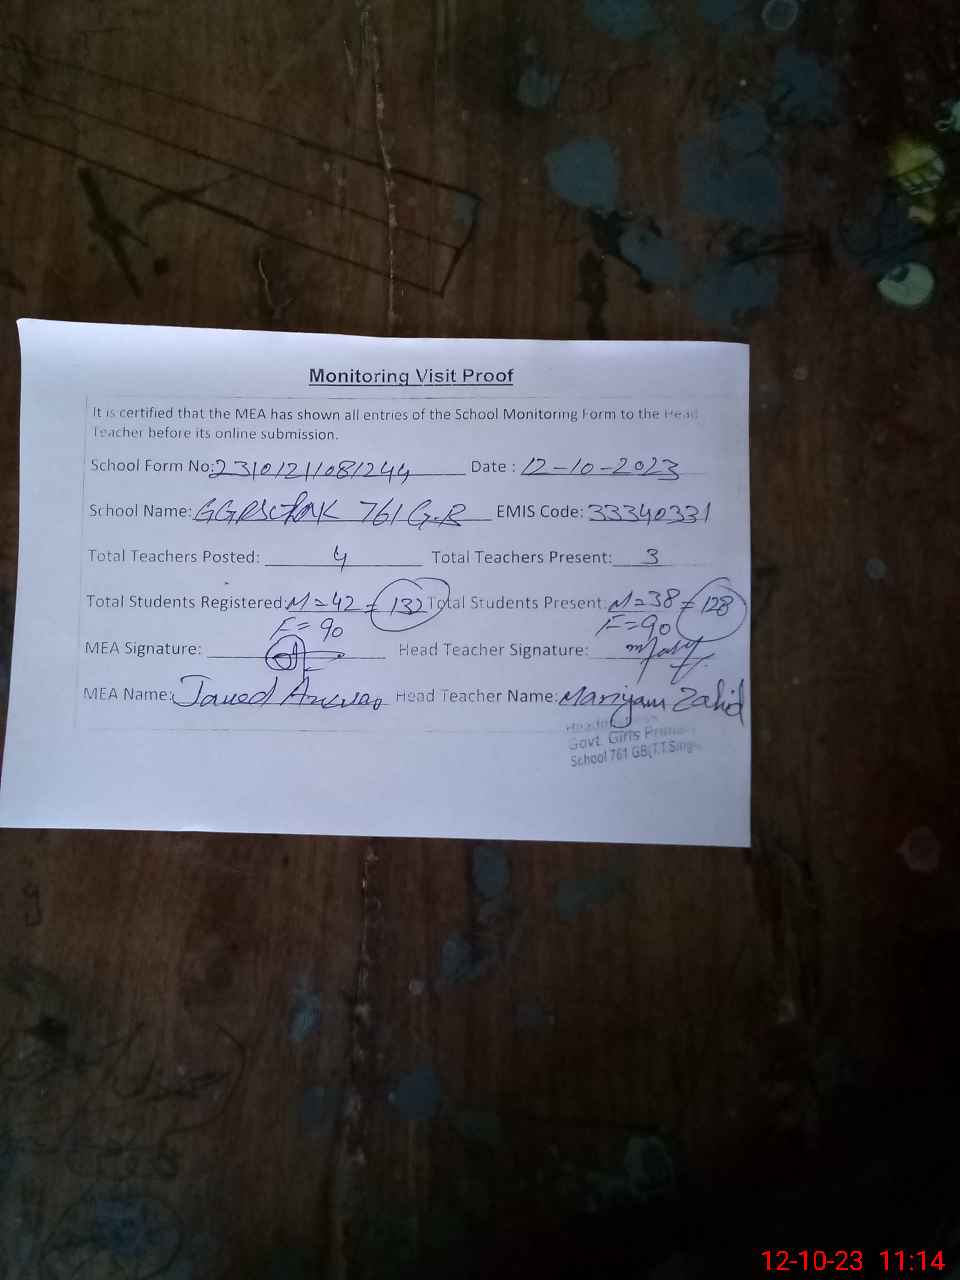 Monitoring Visit Proof
It is certified that the MEA has shown all entries of the School Monitoring Form to the Head
Teacher before its online submission.
School Form No: 23101211081244 Date : 12-10-2023
School Name: 761 G.B EMIS Code: 33340331
Total Teachers Posted: 4 Total Teachers Present: 3
Total Students Registered: M=42 = 132 Total Students Present: M=38 = 128
F=90 F=90
MEA Signature: Head Teacher Signature:
MEA Name: Javed Anwar Head Teacher Name: Mariyam Zahid
Govt. Girls Primary
School 761 GB(T.T.Singh
12-10-23 11:14